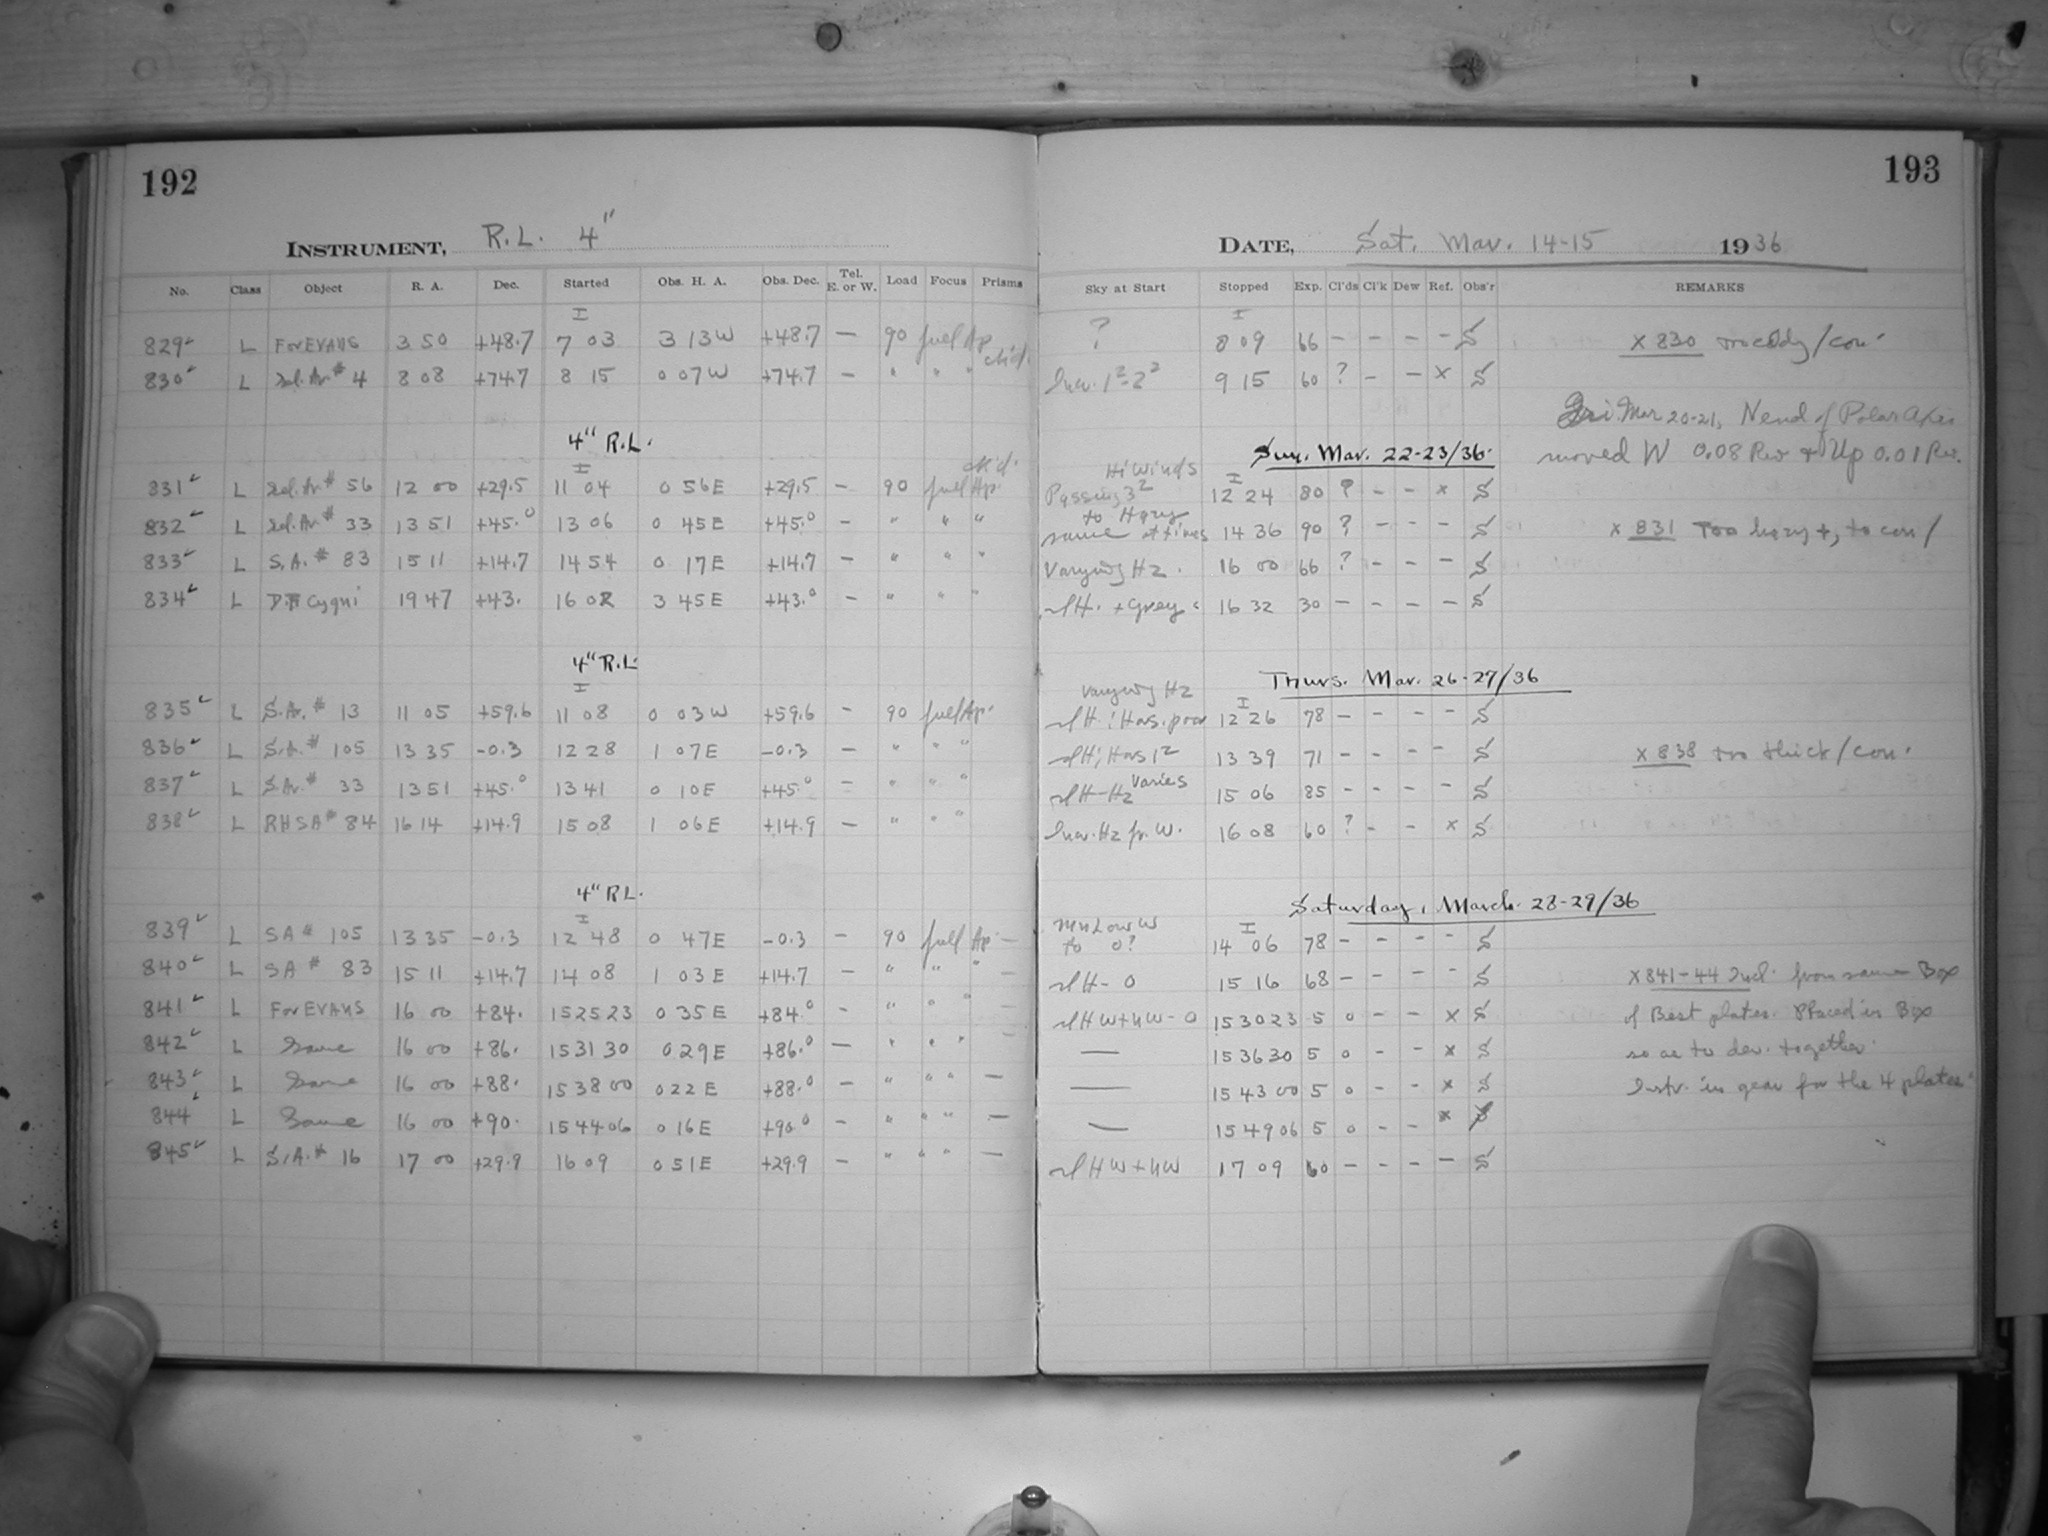 192
193
INSTRUMENT, R.L. 4"
DATE, Sat. Mar. 14-15 1936
No. Class Object R. A. Dec. Started Obs. H. A. Obs. Dec. Tel. E. or W. Load Focus Prisms Sky at Start Stopped Exp. Cl'ds Cl'k Dew Ref. Obs'r REMARKS
I I
829 L For EVANS 3 50 +48.7 7 03 3 13W +48.7 — 90 full Ap ? 8 09 66 — — — — S x 830
830 L Sel. Ar # 4 8 08 +74.7 8 15 0 07W +74.7 — " " " 9 15 60 ? — — x S
Fri. Mar 20-21, N end of Polar Axis
4" R.L. Sun. Mar. 22-23/36. moved W 0.08 Rev & Up 0.01 Rev.
I Hi Winds I
831 L Sel. Ar # 56 12 00 +29.5 11 04 0 56E +29.5 — 90 full Ap. Passing 3² 12 24 80 ? — — x S
to Hazy
832 L Sel. Ar # 33 13 51 +45.0 13 06 0 45E +45.0 — " " " same at times 14 36 90 ? — — — S x 831 Too hazy +, to con/
833 L S.A. # 83 15 11 +14.7 14 54 0 17E +14.7 — " " " Varying Hz. 16 00 66 ? — — — S
834 L Cygni 19 47 +43. 16 02 3 45E +43.0 — " " " sl H. + Grey 16 32 30 — — — — S
4" R.L. Thurs. Mar. 26-27/36
I Varying Hz I
835 L S.Ar. # 13 11 05 +59.6 11 08 0 03W +59.6 — 90 full Ap. sl H; Has. poor 12 26 78 — — — — S
836 L S.A. # 105 13 35 -0.3 12 28 1 07E -0.3 — " " " sl H; Has 1² 13 39 71 — — — — S x 838 too thick/con.
837 L S.Ar. # 33 13 51 +45.0 13 41 0 10E +45.0 — " " " sl H-Hz varies 15 06 85 — — — — S
838 L RHSA # 84 16 14 +14.9 15 08 1 06E +14.9 — " " " Incr. Hz fr. W. 16 08 60 ? — — x S
4" RL. Saturday, March. 28-29/36
I Mn Low W I
839 L SA # 105 13 35 -0.3 12 48 0 47E -0.3 — 90 full Ap — to 0? 14 06 78 — — — — S
840 L SA # 83 15 11 +14.7 14 08 1 03E +14.7 — " " " — sl H- 0 15 16 68 — — — — S x 841-44 Incl. from same Box
841 L For EVANS 16 00 +84. 15 25 23 0 35E +84.0 — " " " — sl H W + NW - 0 15 30 23 5 0 — — x S of Best plates. Placed in Box
842 L Same 16 00 +86. 15 31 30 0 29E +86.0 — " " " — — 15 36 30 5 0 — — x S so as to dev. together.
843 L Same 16 00 +88. 15 38 00 0 22E +88.0 — " " " — — 15 43 00 5 0 — — x S Instr. in gear for the 4 plates.
844 L Same 16 00 +90. 15 44 06 0 16E +90.0 — " " " — — 15 49 06 5 0 — — x S
845 L S.A. # 16 17 00 +29.9 16 09 0 51E +29.9 — " " " — sl H W + NW 17 09 60 — — — — S